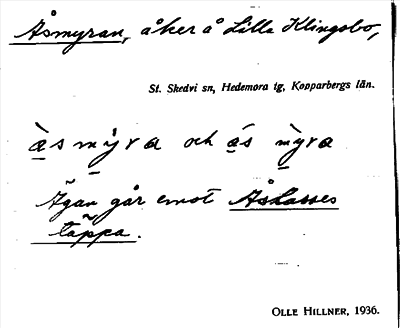 Åsmyran, åker å Lilla Klingsbo,
St. Skedvi sn, Hedemora tg, Kopparbergs län.
àsmỳra och ás mỳra
Ägan går emot Åslasses
täppa.
OLLE HILLNER, 1936.